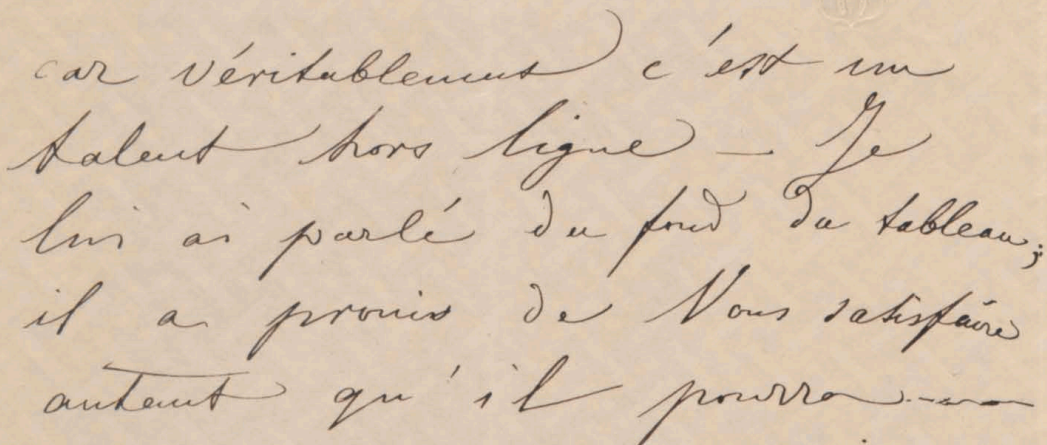 car véritablement c'est un
talent hors ligne — Je
lui ai parlé du fond du tableau;
il a promis de Vous satisfaire
autant qu'il pourra